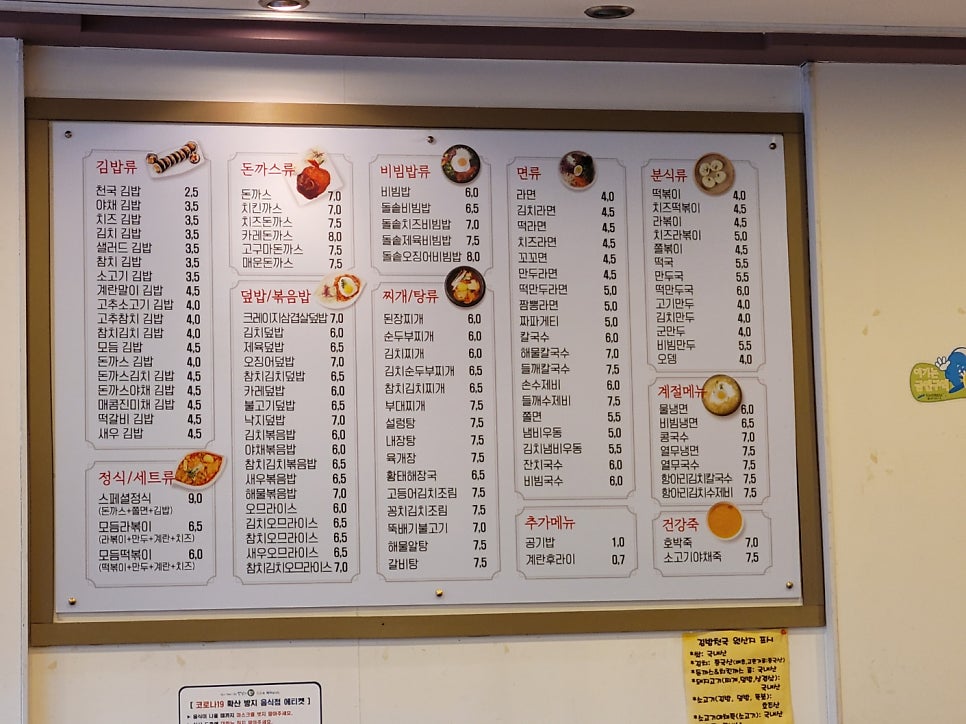 김밥류
천국 김밥 2.5
야채 김밥 3.5
치즈 김밥 3.5
김치 김밥 3.5
샐러드 김밥 3.5
참치 김밥 3.5
소고기 김밥 3.5
계란말이 김밥 4.5
고추소고기 김밥 4.0
고추참치 김밥 4.0
참치김치 김밥 4.0
모듬 김밥 4.5
돈까스 김밥 4.0
돈까스김치 김밥 4.5
돈까스야채 김밥 4.5
매콤진미채 김밥 4.5
떡갈비 김밥 4.5
새우 김밥 4.5
정식/세트류
스페셜정식 9.0
(돈까스+쫄면+김밥)
모듬라볶이 6.5
(라볶이+만두+계란+치즈)
모듬떡볶이 6.0
(떡볶이+만두+계란+치즈)
돈까스류
돈까스 7.0
치킨까스 7.0
치즈돈까스 7.5
카레돈까스 8.0
고구마돈까스 7.5
매운돈까스 7.5
덮밥/볶음밥
크레이지삼겹살덮밥 7.0
김치덮밥 6.0
제육덮밥 6.5
오징어덮밥 7.0
참치김치덮밥 6.5
카레덮밥 6.0
불고기덮밥 6.5
낙지덮밥 7.0
김치볶음밥 6.0
야채볶음밥 6.0
참치김치볶음밥 6.5
새우볶음밥 6.5
해물볶음밥 7.0
오므라이스 6.0
김치오므라이스 6.5
참치오므라이스 6.5
새우오므라이스 6.5
참치김치오므라이스 7.0
비빔밥류
비빔밥 6.0
돌솥비빔밥 6.5
돌솥치즈비빔밥 7.0
돌솥제육비빔밥 7.5
돌솥오징어비빔밥 8.0
찌개/탕류
된장찌개 6.0
순두부찌개 6.0
김치찌개 6.0
김치순두부찌개 6.5
참치김치찌개 6.5
부대찌개 7.5
설렁탕 7.5
내장탕 7.5
육개장 7.5
황태해장국 6.5
고등어김치조림 7.5
꽁치김치조림 7.5
뚝배기불고기 7.0
해물알탕 7.5
갈비탕 7.5
면류
라면 4.0
김치라면 4.5
떡라면 4.5
치즈라면 4.5
꼬꼬면 4.5
만두라면 4.5
떡만두라면 5.0
짬뽕라면 5.0
짜파게티 5.0
칼국수 6.0
해물칼국수 7.0
들깨칼국수 7.5
손수제비 6.0
들깨수제비 7.5
쫄면 5.5
냄비우동 5.0
김치냄비우동 5.5
잔치국수 6.0
비빔국수 6.0
추가메뉴
공기밥 1.0
계란후라이 0.7
분식류
떡볶이 4.0
치즈떡볶이 4.5
라볶이 4.5
치즈라볶이 5.0
쫄볶이 4.5
떡국 5.5
만두국 5.5
떡만두국 6.0
고기만두 4.0
김치만두 4.5
군만두 4.5
비빔만두 5.5
오뎅 4.0
계절메뉴
물냉면 6.0
비빔냉면 6.5
콩국수 7.0
열무냉면 7.5
열무국수 7.5
항아리김치칼국수 7.5
항아리김치수제비 7.5
건강죽
호박죽 7.0
소고기야채죽 7.5
여기는
금연구역
[ 코로나19 확산 방지 음식점 에티켓 ]
김밥천국 원산지 표시
*쌀: 국내산
국내산